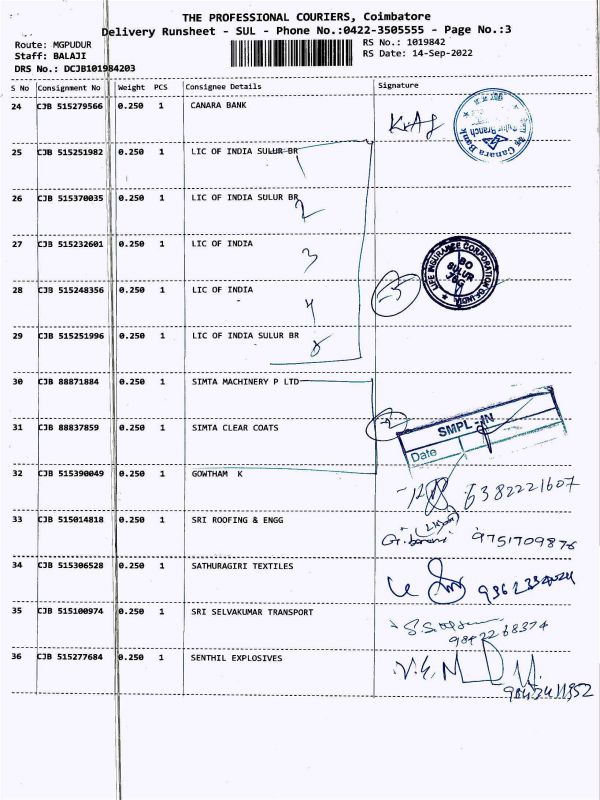 THE PROFESSIONAL COURIERS, Coimbatore
Delivery Runsheet - SUL - Phone No.:0422-3505555 - Page No.:3
Route: MGPUDUR
RS No.: 1019842
Staff: BALAJI
RS Date: 14-Sep-2022
DRS No.: DCJB101984203
S No Consignment No Weight PCS Consignee Details Signature
24 CJB 515279566 0.250 1 CANARA BANK
Canara Bank
Sulur Branch
25 CJB 515251982 0.250 1 LIC OF INDIA SULUR BR 1
26 CJB 515370035 0.250 1 LIC OF INDIA SULUR BR 2
27 CJB 515232601 0.250 1 LIC OF INDIA 3
LIFE INSURANCE CORPORATION OF INDIA
BO
SULUR
28 CJB 515248356 0.250 1 LIC OF INDIA 4 5
29 CJB 515251996 0.250 1 LIC OF INDIA SULUR BR
30 CJB 88871884 0.250 1 SIMTA MACHINERY P LTD
31 CJB 88837859 0.250 1 SIMTA CLEAR COATS 2
SMPL-IN
Date
32 CJB 515390049 0.250 1 GOWTHAM K 6382221607
33 CJB 515014818 0.250 1 SRI ROOFING & ENGG 9751709876
34 CJB 515306528 0.250 1 SATHURAGIRI TEXTILES
35 CJB 515100974 0.250 1 SRI SELVAKUMAR TRANSPORT
36 CJB 515277684 0.250 1 SENTHIL EXPLOSIVES